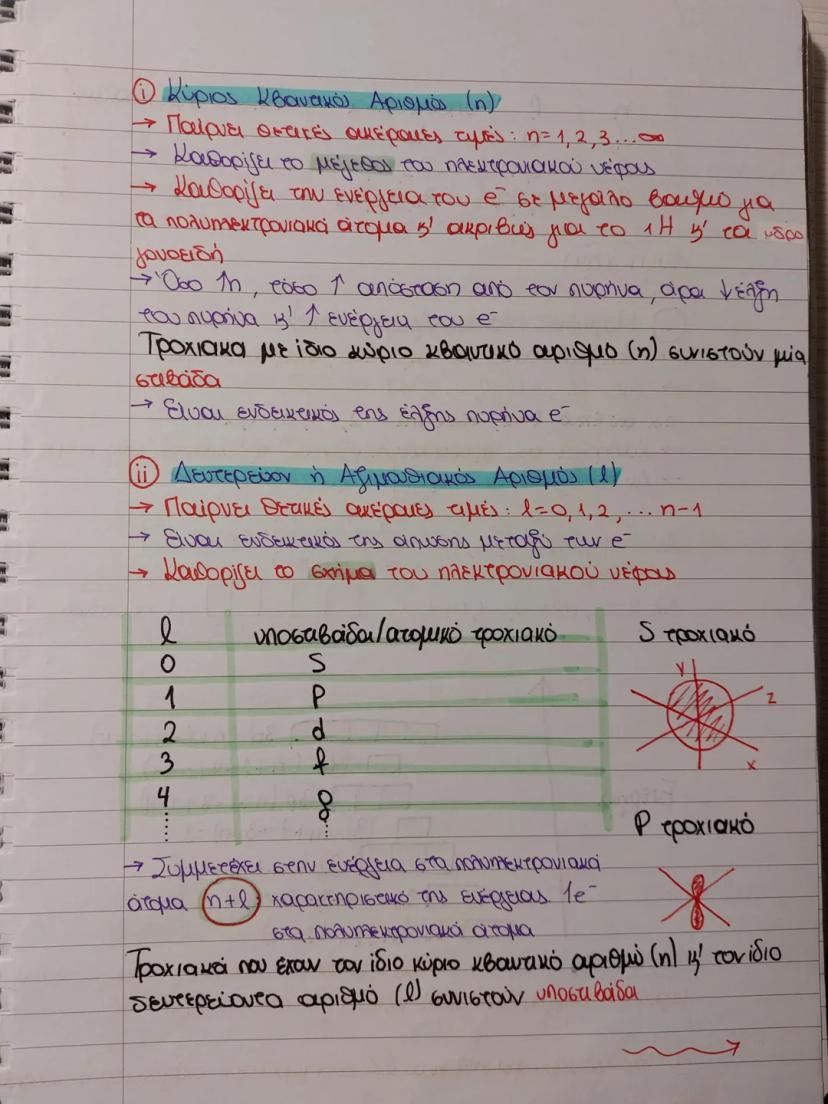 i Κύριος Κβαντικός Αριθμός (n)
→ Παίρνει θετικές ακέραιες τιμές: n=1,2,3...∞
→ Καθορίζει το μέγεθος του ηλεκτρονιακού νέφους
→ Καθορίζει την ενέργεια του e⁻ σε μεγάλο βαθμό για
τα πολυηλεκτρονιακά άτομα κ' ακριβώς για το 1H κ' τα υδρο
γονοειδή
→ Όσο ↑n, τόσο ↑ απόσταση από τον πυρήνα, άρα ↓ έλξη
του πυρήνα κ' ↑ ενέργεια του e⁻
Τροχιακά με ίδιο κύριο κβαντικό αριθμό (n) συνιστούν μία
στιβάδα
→ Είναι ενδεικτικός της έλξης πυρήνα e⁻
ii Δευτερεύον ή Αζιμουθιακός Αριθμός (l)
→ Παίρνει θετικές ακέραιες τιμές: l=0,1,2,... n-1
→ Είναι ενδεικτικός της άπωσης μεταξύ των e⁻
→ Καθορίζει το σχήμα του ηλεκτρονιακού νέφους
l υποστιβάδα/ατομικό τροχιακό
0 S
1 p
2 d
3 f
4 g
S τροχιακό
y
z
x
P τροχιακό
→ Συμμετέχει στην ενέργεια στα πολυηλεκτρονιακά
άτομα n+l χαρακτηριστικό της ενέργειας 1e⁻
στα πολυηλεκτρονιακά άτομα
Τροχιακά που έχουν τον ίδιο κύριο κβαντικό αριθμό (n) κ' τον ίδιο
δευτερεύοντα αριθμό (l) συνιστούν υποστιβάδα